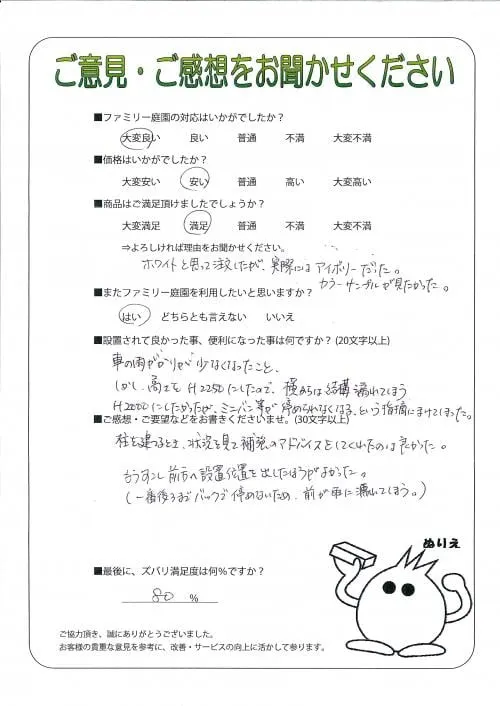 ご意見・ご感想をお聞かせください
■ファミリー庭園の対応はいかがでしたか?
大変良い 良い 普通 不満 大変不満
■価格はいかがでしたか?
大変安い 安い 普通 高い 大変高い
■商品はご満足頂けましたでしょうか?
大変満足 満足 普通 不満 大変不満
⇒よろしければ理由をお聞かせください。
ホワイトと思って注文したが、実際にはアイボリーだった。
カラーサンプルが見たかった。
■またファミリー庭園を利用したいと思いますか?
はい どちらとも言えない いいえ
■設置されて良かった事、便利になった事は何ですか? (20文字以上)
車の雨がかりが少なくなったこと、
しかし、高さを H2250にしたので、横からは結構濡れてしまう
H2000にしたかったが、ミニバン等が停められなくなる、という指摘にまけてしまった。
■ご感想・ご要望などをお書きくださいませ。(30文字以上)
柱を建てるとき、状況を見て補強のアドバイスをしてくれたのは良かった。
もうすこし前方へ設置位置を出したほうがよかった。
(一番後ろまでバックで停めないため、前が雨に濡れてしまう。)
■最後に、ズバリ満足度は何%ですか?
80 %
ぬりえ
ご協力頂き、誠にありがとうございました。
お客様の貴重な意見を参考に、改善・サービスの向上に活かして参ります。